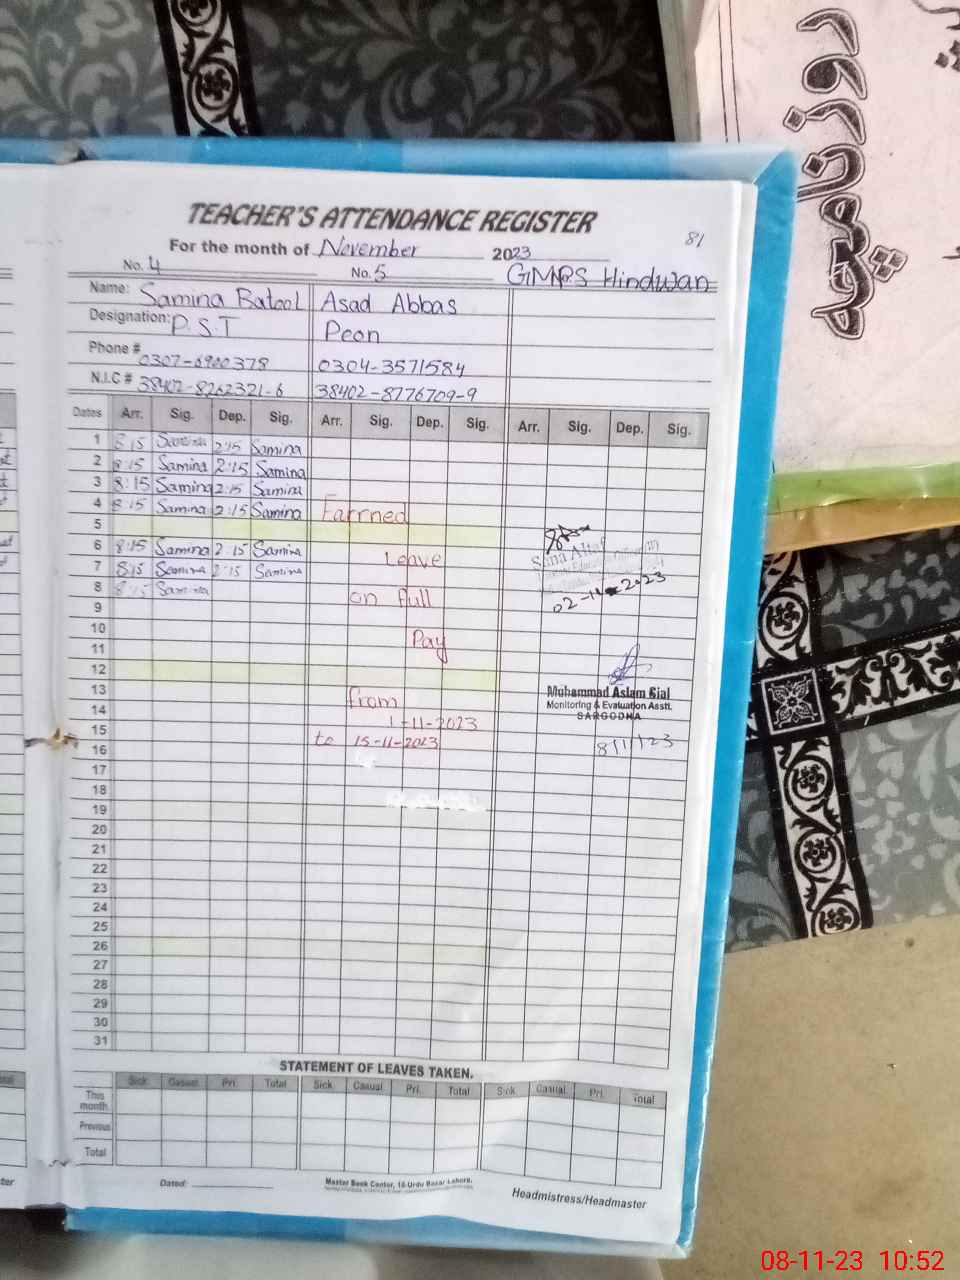 روزنامچہ
TEACHER'S ATTENDANCE REGISTER
81
For the month of November 2023
No. 4 No. 5 GMPS Hindwan
Name: Samina Batool Asad Abbas
Designation: P.S.T Peon
Phone # 0307-6900378 0304-3571584
N.I.C # 38402-8262321-6 38402-8776709-9
Dates Arr. Sig. Dep. Sig. Arr. Sig. Dep. Sig. Arr. Sig. Dep. Sig.
1 8:15 Samina 2:15 Samina
2 8:15 Samina 2:15 Samina
3 8:15 Samina 2:15 Samina
4 8:15 Samina 2:15 Samina Earned
5
6 8:15 Samina 2:15 Samina Sana Altaf
7 8:15 Samina 2:15 Samina Leave
8 8:15 Samina 02-11-2023
9 on Full
10
11 Pay
12
13 Muhammad Aslam Gial
14 from Monitoring & Evaluation Asstt.
SARGODHA
15 1-11-2023
16 to 15-11-2023 8/11/23
17
18
19
20
21
22
23
24
25
26
27
28
29
30
31
STATEMENT OF LEAVES TAKEN.
Sick Casual Pri. Total Sick Casual Pri. Total Sick Casual Pri. Total
This month
Previous
Total
Dated: Master Book Center, 16-Urdu Bazar Lahore.
Headmistress/Headmaster
08-11-23 10:52